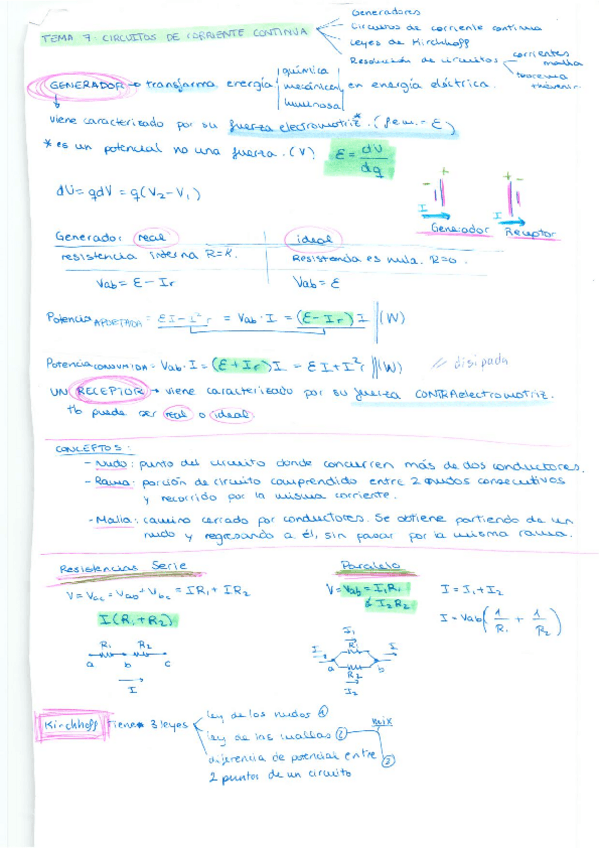 TEMA 7: CIRCUITOS DE CORRIENTE CONTINUA
Generadores
Circuitos de corriente continua
Leyes de Kirchhoff
Resolución de circuitos
corrientes malla
teorema thévenin
GENERADOR → transforma energía química mecánica luminosa en energía eléctrica.
viene caracterizado por su fuerza electromotriz* (fem. - ε)
* es un potencial no una fuerza. (V) ε = dU/dq
dU = qdV = q(V2-V1)
- + + -
I I
Generador Receptor
Generador real ideal
resistencia interna R=x. Resistencia es nula. R=0.
Vab = ε - Ir Vab = ε
Potencia APORTADA = εI - I²r = Vab · I = (ε - Ir) I (W)
Potencia CONSUMIDA = Vab · I = (ε + Ir) I = εI + I²r (W) // disipada
UN RECEPTOR → viene caracterizado por su fuerza CONTRAelectromotriz.
tb puede ser real o ideal
CONCEPTOS:
- Nudo: punto del circuito donde concurren más de dos conductores.
- Rama: porción de circuito comprendido entre 2 nudos consecutivos
y recorrido por la misma corriente.
- Malla: camino cerrado por conductores. Se obtiene partiendo de un
nudo y regresando a él, sin pasar por la misma rama.
Resistencias Serie Paralelo
V = Vac = Vab + Vbc = IR1 + IR2 V = Vab = I1R1 I = I1 + I2
I(R1+R2) I2R2 I = Vab (1/R1 + 1/R2)
R1 R2
a b c
I
I1
I R1 I
a b
R2
I2
Kirchhoff tiene 3 leyes
ley de los nudos ①
ley de las mallas ② mix
diferencia de potencial entre ③
2 puntos de un circuito